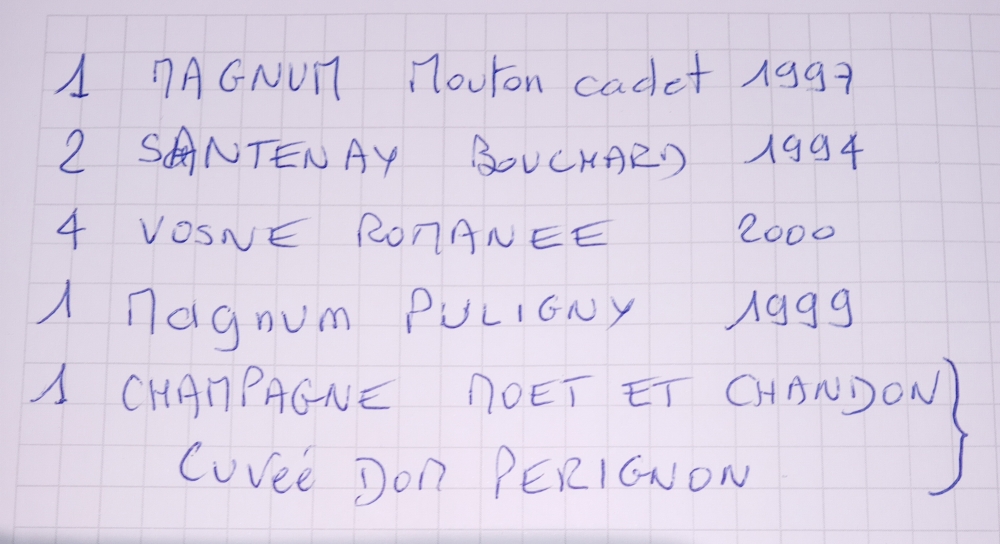 1 MAGNUM Mouton cadet 1997
2 SANTENAY BOUCHARD 1994
4 VOSNE ROMANEE 2000
1 Magnum PULIGNY 1999
1 CHAMPAGNE MOET ET CHANDON
Cuveé DOM PERIGNON